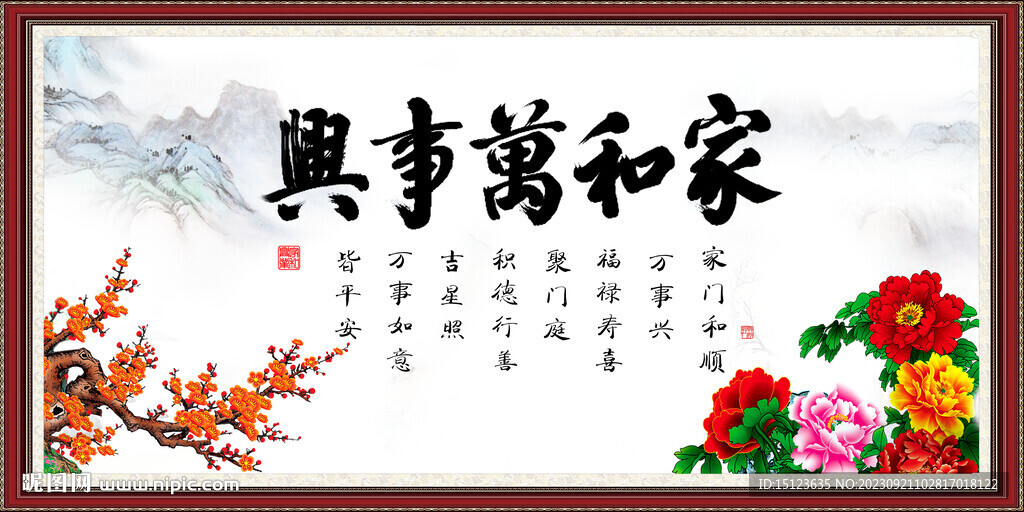 家和萬事興
家门和顺
万事兴
福禄寿喜
聚门庭
积德行善
吉星照
万事如意
皆平安
昵图网 www.nipic.com
ID:15123635 NO:20230921102817018122